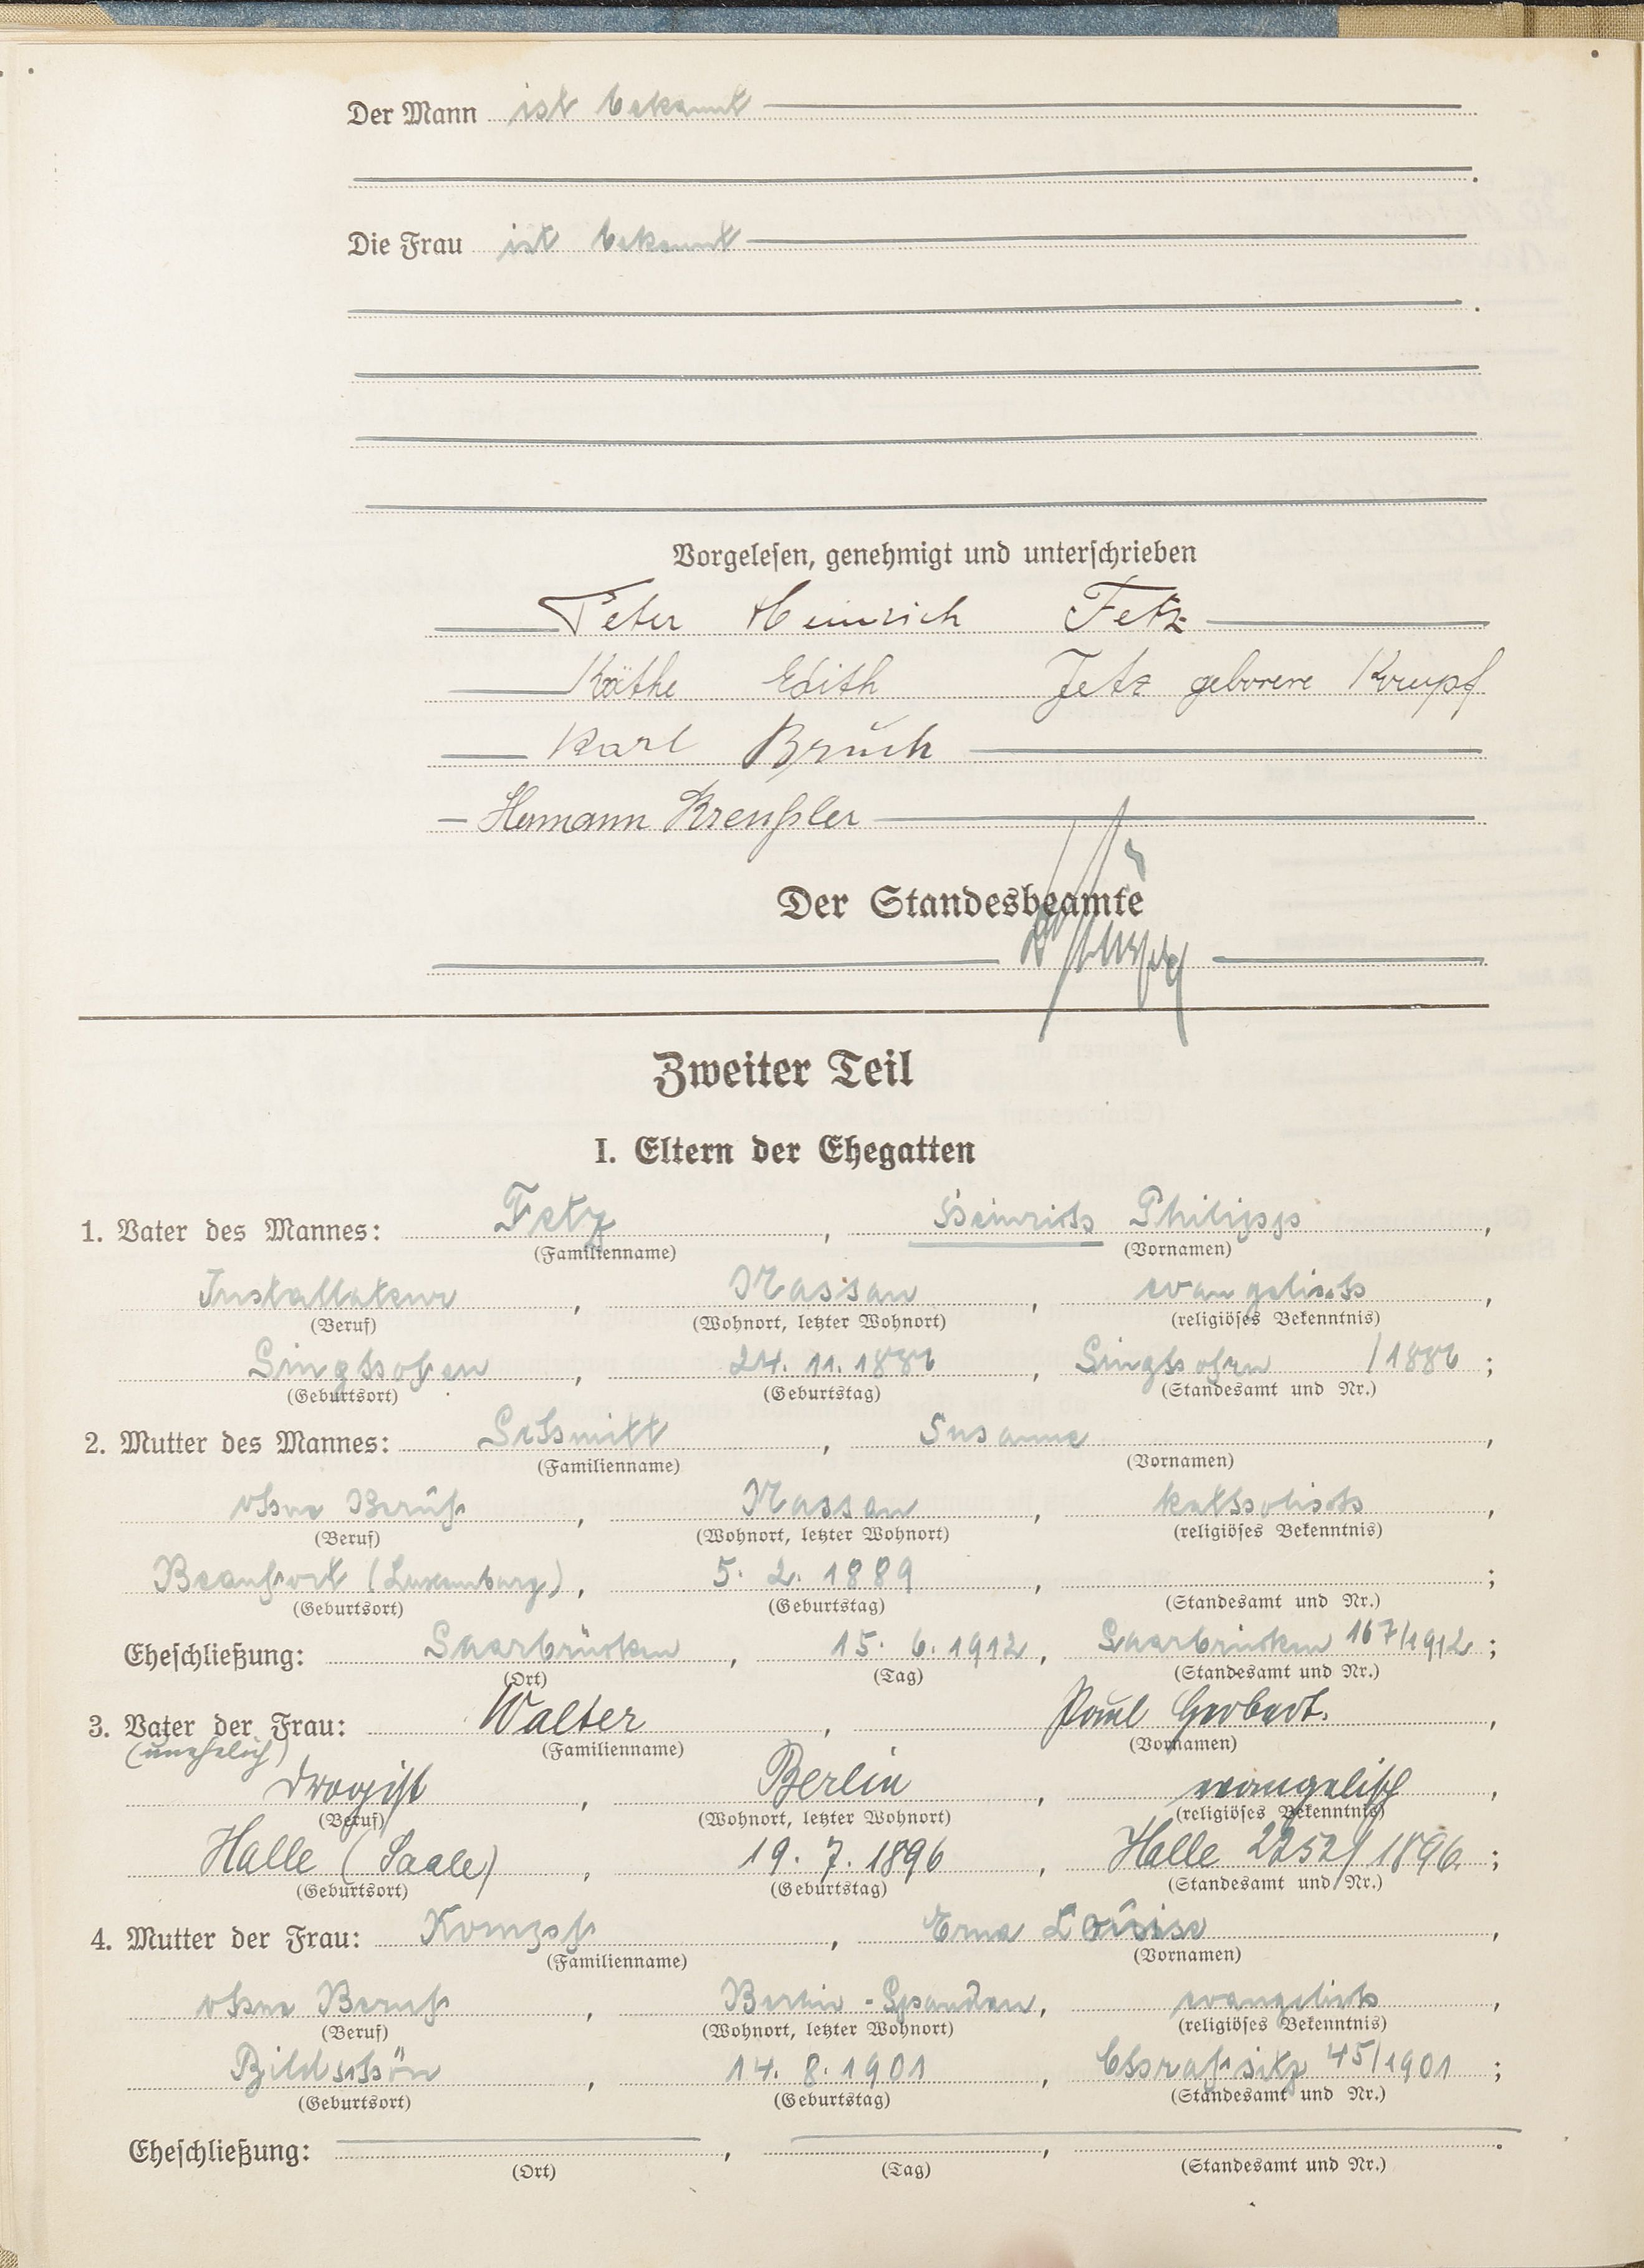 Der Mann ist bekannt
Die Frau ist bekannt
Vorgelesen, genehmigt und unterschrieben
Peter Heinrich Fetz
Käthe Edith Fetz geborene Krumpf
Karl Bruch
Hermann Kreußler
Der Standesbeamte
Zweiter Teil
I. Eltern der Ehegatten
1. Vater des Mannes: Fetz, Heinrich Philipp,
(Familienname) (Vornamen)
Installateur, Nassau, evangelisch,
(Beruf) (Wohnort, letzter Wohnort) (religiöses Bekenntnis)
Singhofen, 24. 11. 1886, Singhofen /1886;
(Geburtsort) (Geburtstag) (Standesamt und Nr.)
2. Mutter des Mannes: Schmitt, Susanne,
(Familienname) (Vornamen)
ohne Beruf, Nassau, katholisch,
(Beruf) (Wohnort, letzter Wohnort) (religiöses Bekenntnis)
Beaufort (Luxemburg), 5. 2. 1889, ;
(Geburtsort) (Geburtstag) (Standesamt und Nr.)
Eheschließung: Saarbrücken, 15. 6. 1912, Saarbrücken 167/1912;
(Ort) (Tag) (Standesamt und Nr.)
3. Vater der Frau: Walter, Paul Herbert.,
(unehelich) (Familienname) (Vornamen)
Drogist, Berlin, evangelisch,
(Beruf) (Wohnort, letzter Wohnort) (religiöses Bekenntnis)
Halle (Saale), 19. 7. 1896, Halle 2252/1896;
(Geburtsort) (Geburtstag) (Standesamt und Nr.)
4. Mutter der Frau: Erna Louise,
(Familienname) (Vornamen)
ohne Beruf, Berlin-Spandau, evangelisch,
(Beruf) (Wohnort, letzter Wohnort) (religiöses Bekenntnis)
Bildschön, 14. 8. 1901, 45/1901;
(Geburtsort) (Geburtstag) (Standesamt und Nr.)
Eheschließung: , , .
(Ort) (Tag) (Standesamt und Nr.)